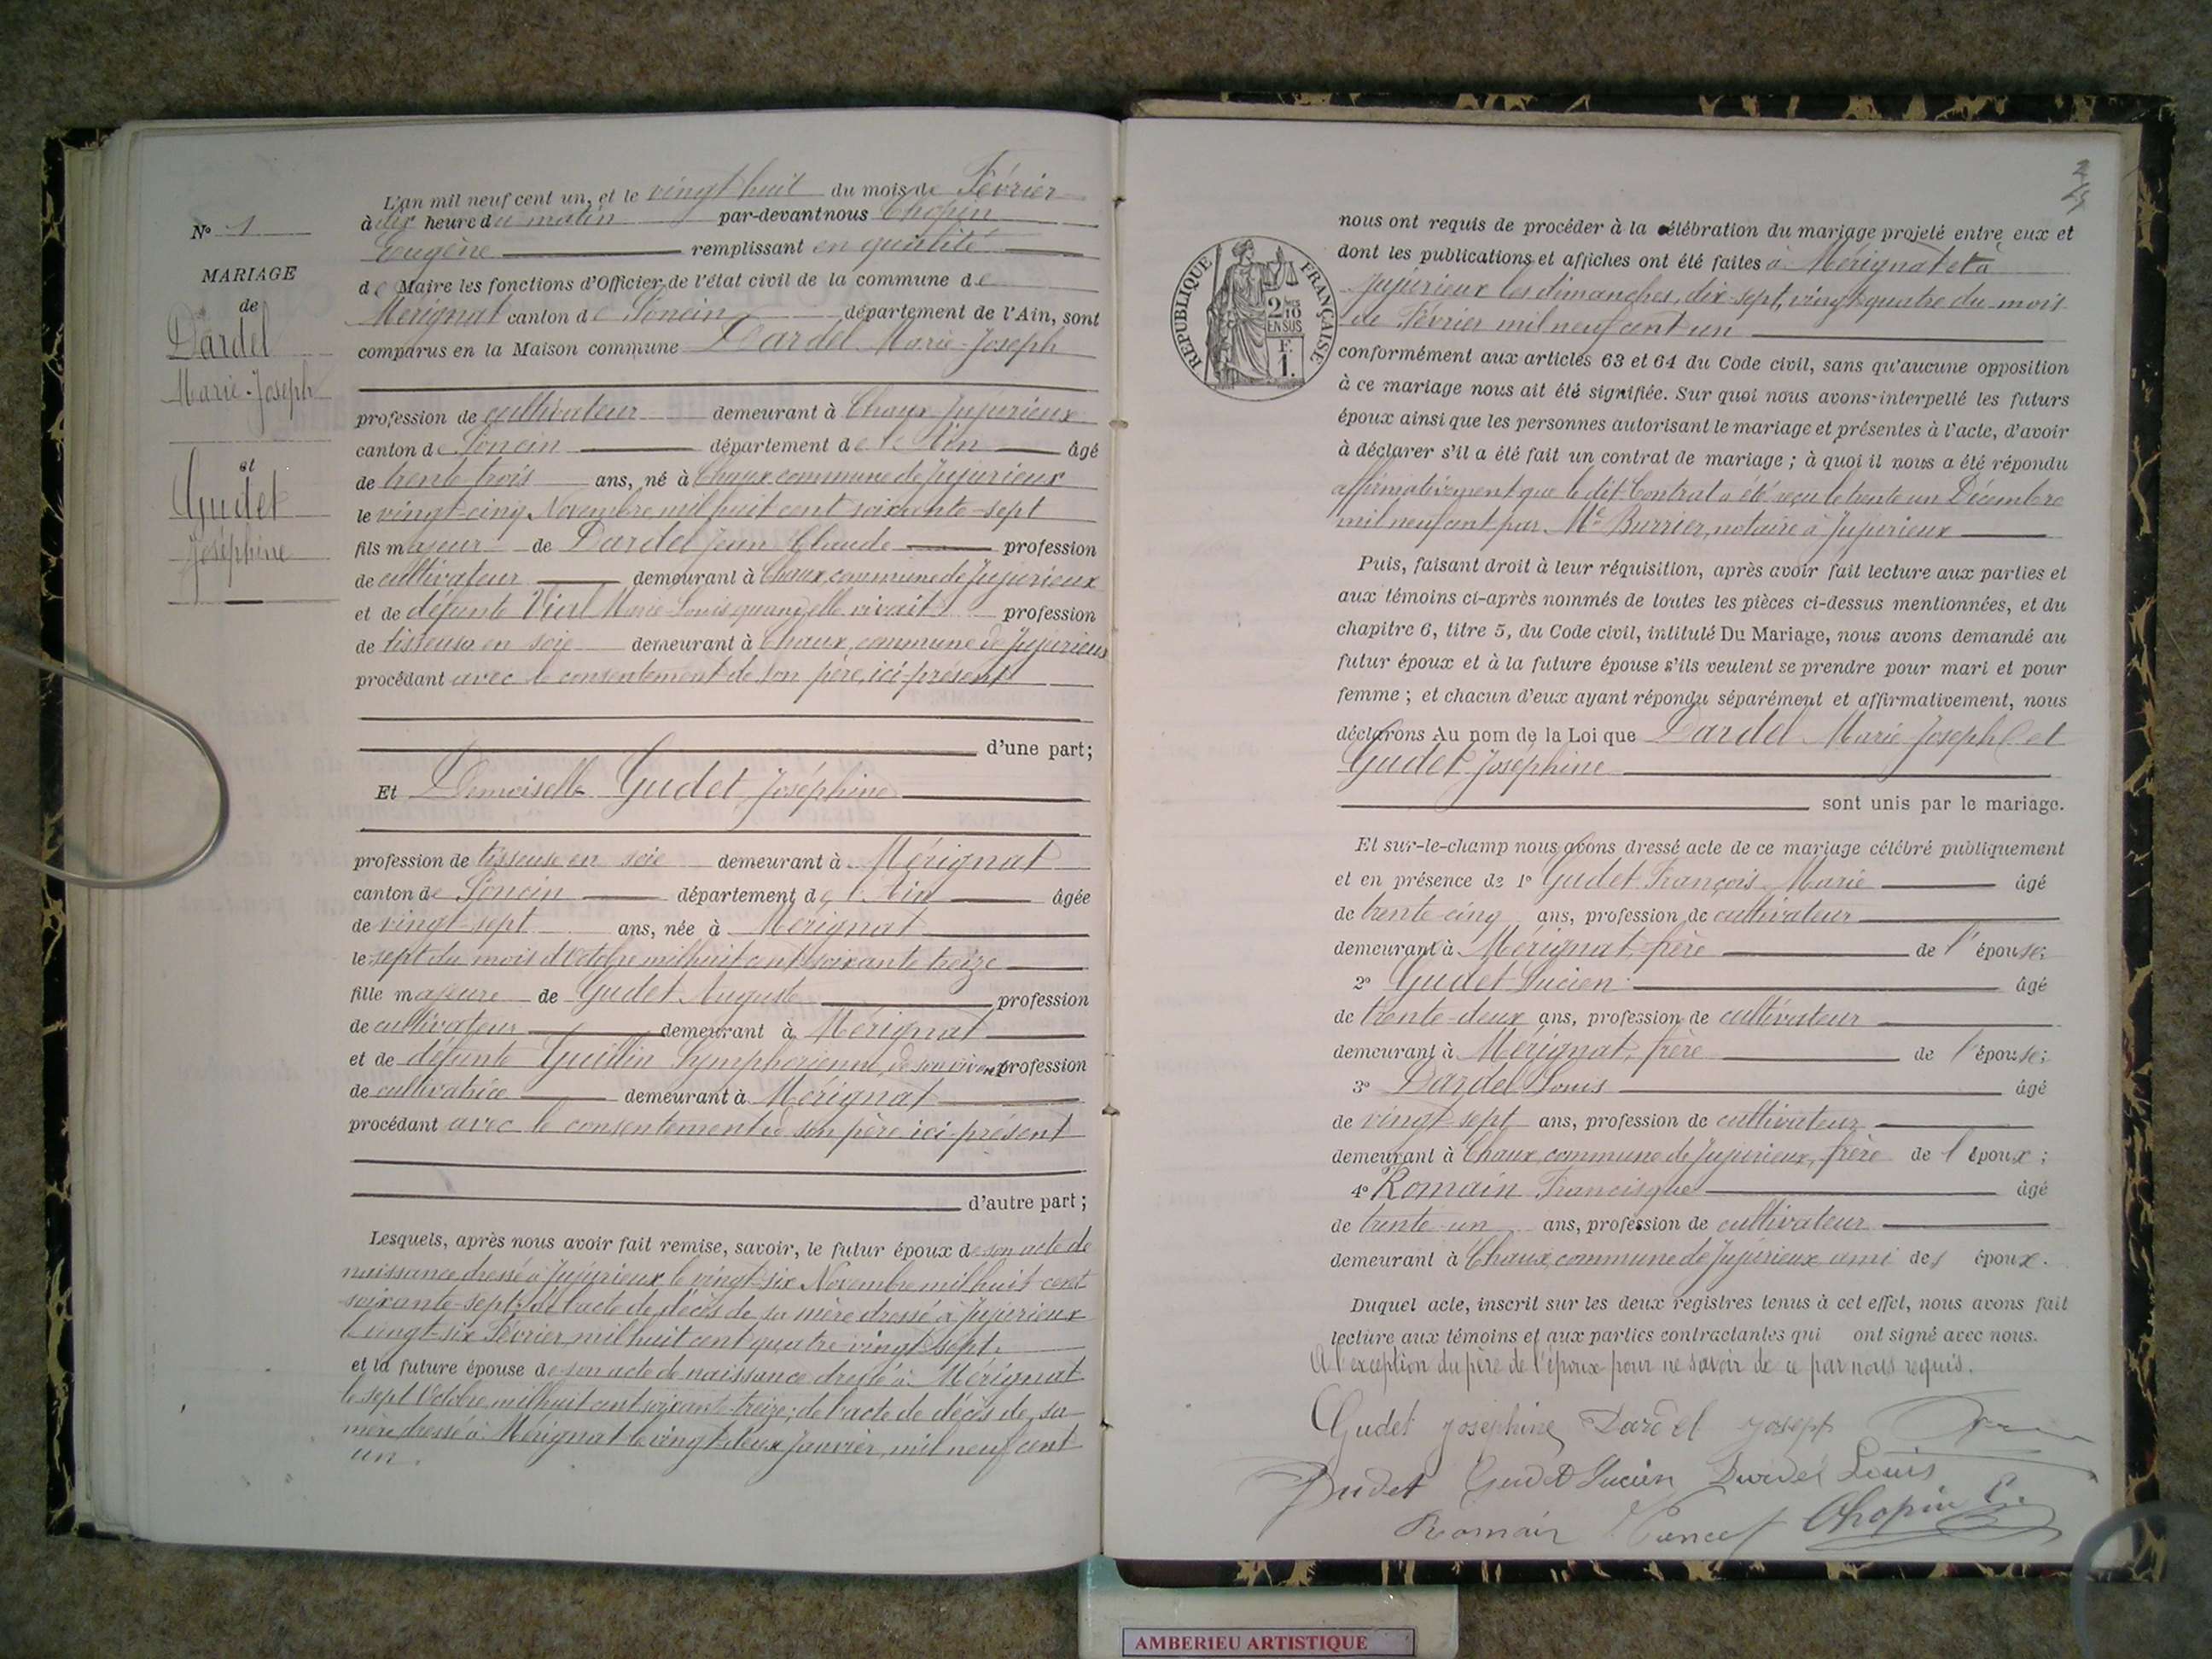 N° 1
MARIAGE
de
Dardel
Marie-Joseph
et
Gudet
Joséphine
L'an mil neuf cent un, et le vingt huit du mois de Février
à dix heure du matin par-devant nous Chopin
Eugène remplissant en qualité
de Maire les fonctions d'Officier de l'état civil de la commune de
Mérignat canton de Poncin département de l'Ain, sont
comparus en la Maison commune Dardel Marie-Joseph
profession de cultivateur demeurant à Chaux, Jujurieux
canton de Poncin département de l'Ain âgé
de trente trois ans, né à Chaux, commune de Jujurieux
le vingt-cinq Novembre mil huit cent soixante-sept
fils majeur de Dardel Jean Claude profession
de cultivateur demeurant à Chaux, commune de Jujurieux
et de défunte Vial Marie Louis quand elle vivait profession
de tisseuse en soie demeurant à Chaux, commune de Jujurieux
procédant avec le consentement de son père, ici-présent
d'une part;
Et Demoiselle Gudet, Joséphine
profession de tisseuse en soie demeurant à Mérignat
canton de Poncin département de l'Ain âgée
de vingt-sept ans, née à Mérignat
le sept du mois d'Octobre mil huit cent soixante treize
fille majeure de Gudet Auguste profession
de cultivateur demeurant à Mérignat
et de défunte Guillin Symphorienne, de son vivant profession
de cultivatrice demeurant à Mérignat
procédant avec le consentement de son père ici-présent
d'autre part;
Lesquels, après nous avoir fait remise, savoir, le futur époux de son acte de
naissance dressé à Jujurieux le vingt-six Novembre mil huit cent
soixante-sept; de l'acte de décès de sa mère dressé à Jujurieux
le vingt-six Février mil huit cent quatre vingt sept.
et la future épouse de son acte de naissance dressé à Mérignat
le sept Octobre mil huit cent soixante-treize; de l'acte de décès de sa
mère dressé à Mérignat le vingt-deux Janvier, mil neuf cent
un.
2
RÉPUBLIQUE FRANÇAISE
2/10
EN SUS
F.
1.
nous ont requis de procéder à la célébration du mariage projeté entre eux et
dont les publications et affiches ont été faites à Mérignat et à
Jujurieux les dimanches, dix-sept, vingt-quatre du mois
de Février mil neuf cent un
conformément aux articles 63 et 64 du Code civil, sans qu'aucune opposition
à ce mariage nous ait été signifiée. Sur quoi nous avons interpellé les futurs
époux ainsi que les personnes autorisant le mariage et présentes à l'acte, d'avoir
à déclarer s'il a été fait un contrat de mariage; à quoi il nous a été répondu
affirmativement que le dit Contrat a été reçu le trente un Décembre
mil neuf cent par Me Burrier, notaire à Jujurieux
Puis, faisant droit à leur réquisition, après avoir fait lecture aux parties et
aux témoins ci-après nommés de toutes les pièces ci-dessus mentionnées, et du
chapitre 6, titre 5, du Code civil, intitulé Du Mariage, nous avons demandé au
futur époux et à la future épouse s'ils veulent se prendre pour mari et pour
femme; et chacun d'eux ayant répondu séparément et affirmativement, nous
déclarons Au nom de la Loi que Dardel Marie Joseph et
Gudet Joséphine
sont unis par le mariage.
Et sur-le-champ nous avons dressé acte de ce mariage célébré publiquement
et en présence de 1° Gudet François-Marie âgé
de trente cinq ans, profession de cultivateur
demeurant à Mérignat, frère de l'épouse;
2° Gudet Lucien âgé
de trente-deux ans, profession de cultivateur
demeurant à Mérignat, frère de l'épouse;
3° Dardel Louis âgé
de vingt sept ans, profession de cultivateur
demeurant à Chaux, commune de Jujurieux, frère de l'époux;
4° Romain Francisque âgé
de trente un ans, profession de cultivateur
demeurant à Chaux, commune de Jujurieux ami des époux.
Duquel acte, inscrit sur les deux registres tenus à cet effet, nous avons fait
lecture aux témoins et aux parties contractantes qui ont signé avec nous.
A l'exception du père de l'époux pour ne savoir de ce par nous requis.
Gudet Joséphine Dardel Joseph
Gudet Gudet Lucien Dardel Louis
Romain Chopin E.
AMBERIEU ARTISTIQUE